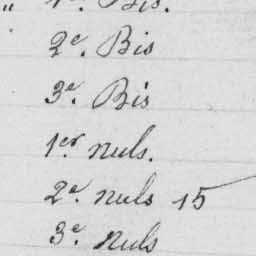 " 1er. Bis.
2e. Bis
3e. Bis
1er. nuls.
2e. nuls 15
3e. nuls